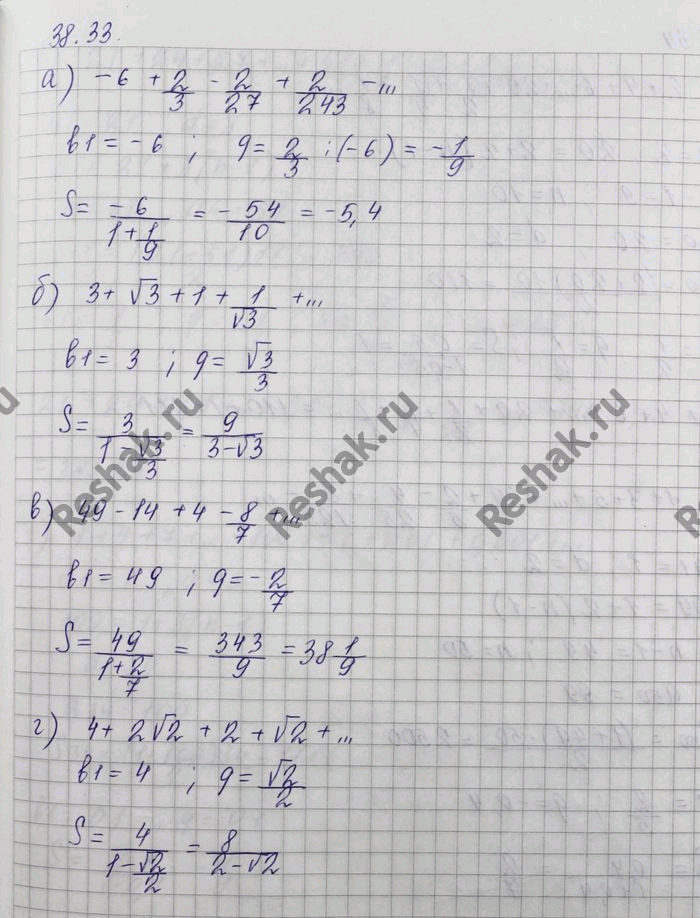 38.33.
а) -6 + 2/3 - 2/27 + 2/243 - ...
b1 = -6 ; q = 2/3 : (-6) = -1/9
S = -6/(1+1/9) = -54/10 = -5,4
б) 3 + √3 + 1 + 1/√3 + ...
b1 = 3 ; q = √3/3
S = 3/(1-√3/3) = 9/(3-√3)
в) 49 - 14 + 4 - 8/7 + ...
b1 = 49 ; q = -2/7
S = 49/(1+2/7) = 343/9 = 38 1/9
г) 4 + 2√2 + 2 + √2 + ...
b1 = 4 ; q = √2/2
S = 4/(1-√2/2) = 8/(2-√2)
Reshak.ru
Reshak.ru
Reshak.ru